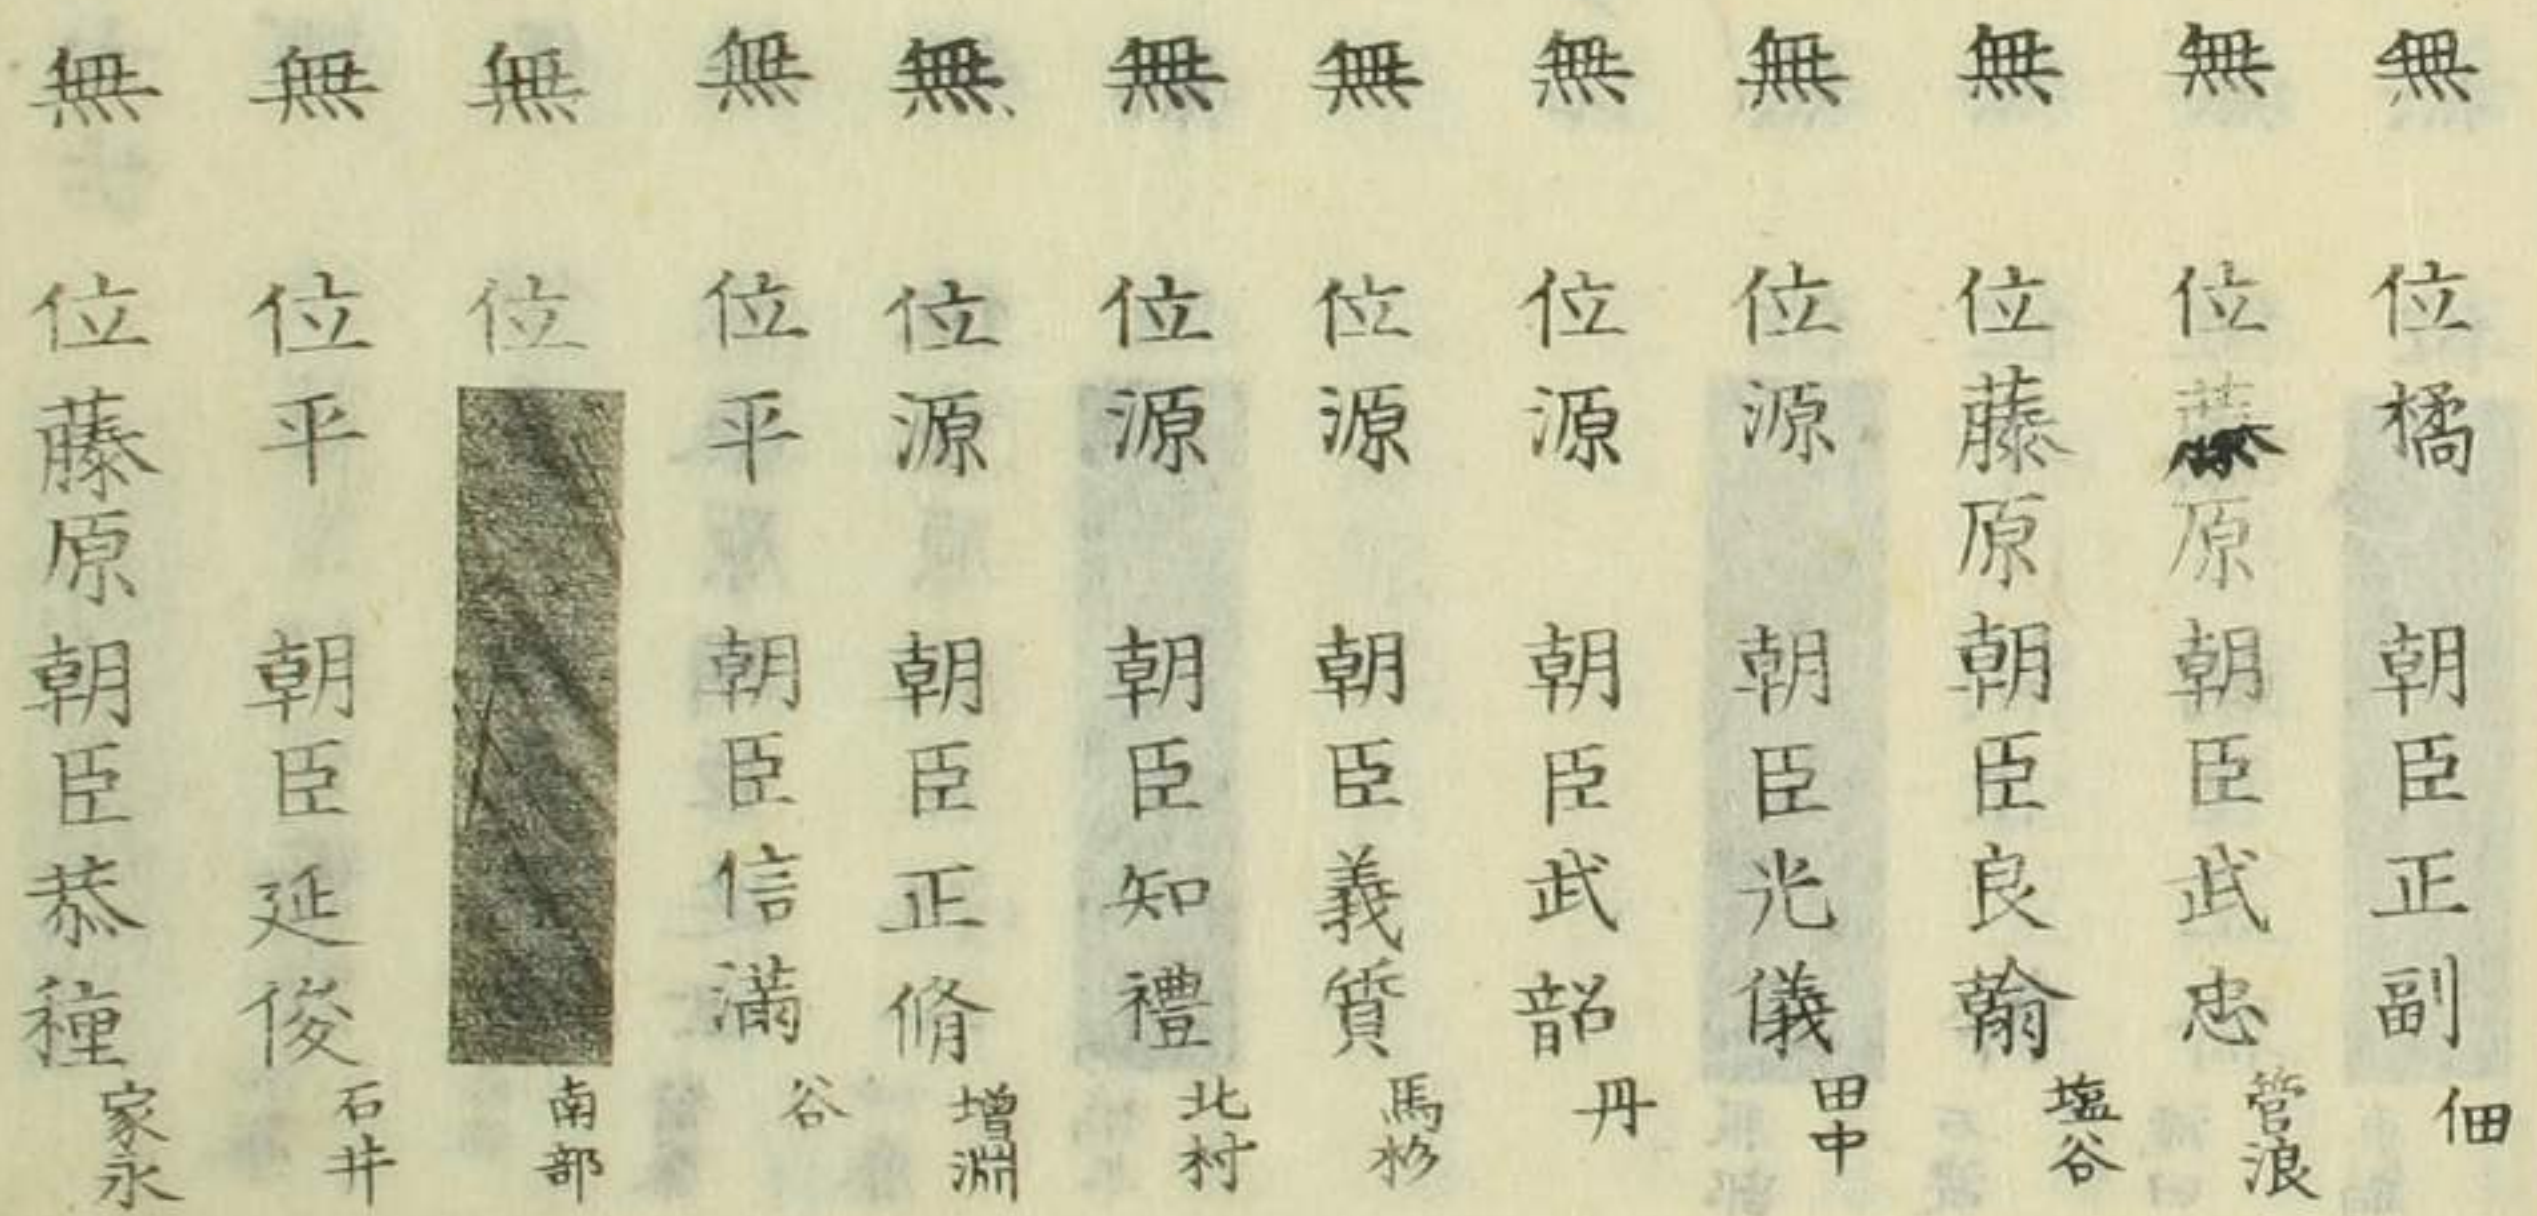 無位橘朝臣正副 佃
無位藤原朝臣武忠 管浪
無位藤原朝臣良翰 塩谷
無位源朝臣光儀 田中
無位源朝臣武韶 丹
無位源朝臣義質 馬杉
無位源朝臣知禮 北村
無位源朝臣正脩 增淵
無位平朝臣信満 谷
無位 南部
無位平朝臣延俊 石井
無位藤原朝臣恭種 家永